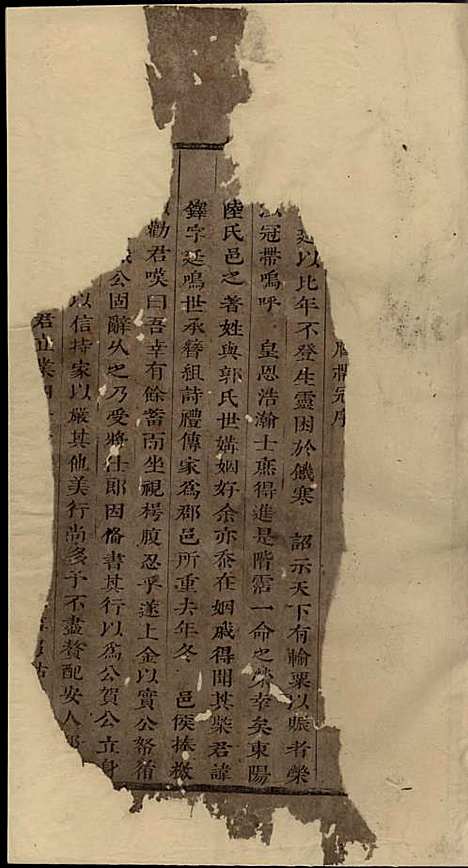 冠序
廷以比年不登生靈困於饑寒 詔示天下有輸粟以賑者榮
冠帶嗚呼 皇恩浩瀚士庶得進是階霑一命之榮幸矣東陽
陸氏邑之著姓與郭氏世媾姻好余亦忝在姻戚得聞其榮君諱
鐸字廷鳴世承簪組詩禮傳家為郡邑所重去年冬 邑侯捧檄
勸君嘆曰吾幸有餘蓄而坐視枵腹忍乎遂上金以實公帑侑
公固辭久之乃受將仕郎因俻書其行以為公賀公立身
以信持家以嚴其他美行尚多予不盡贅配安人郭
君